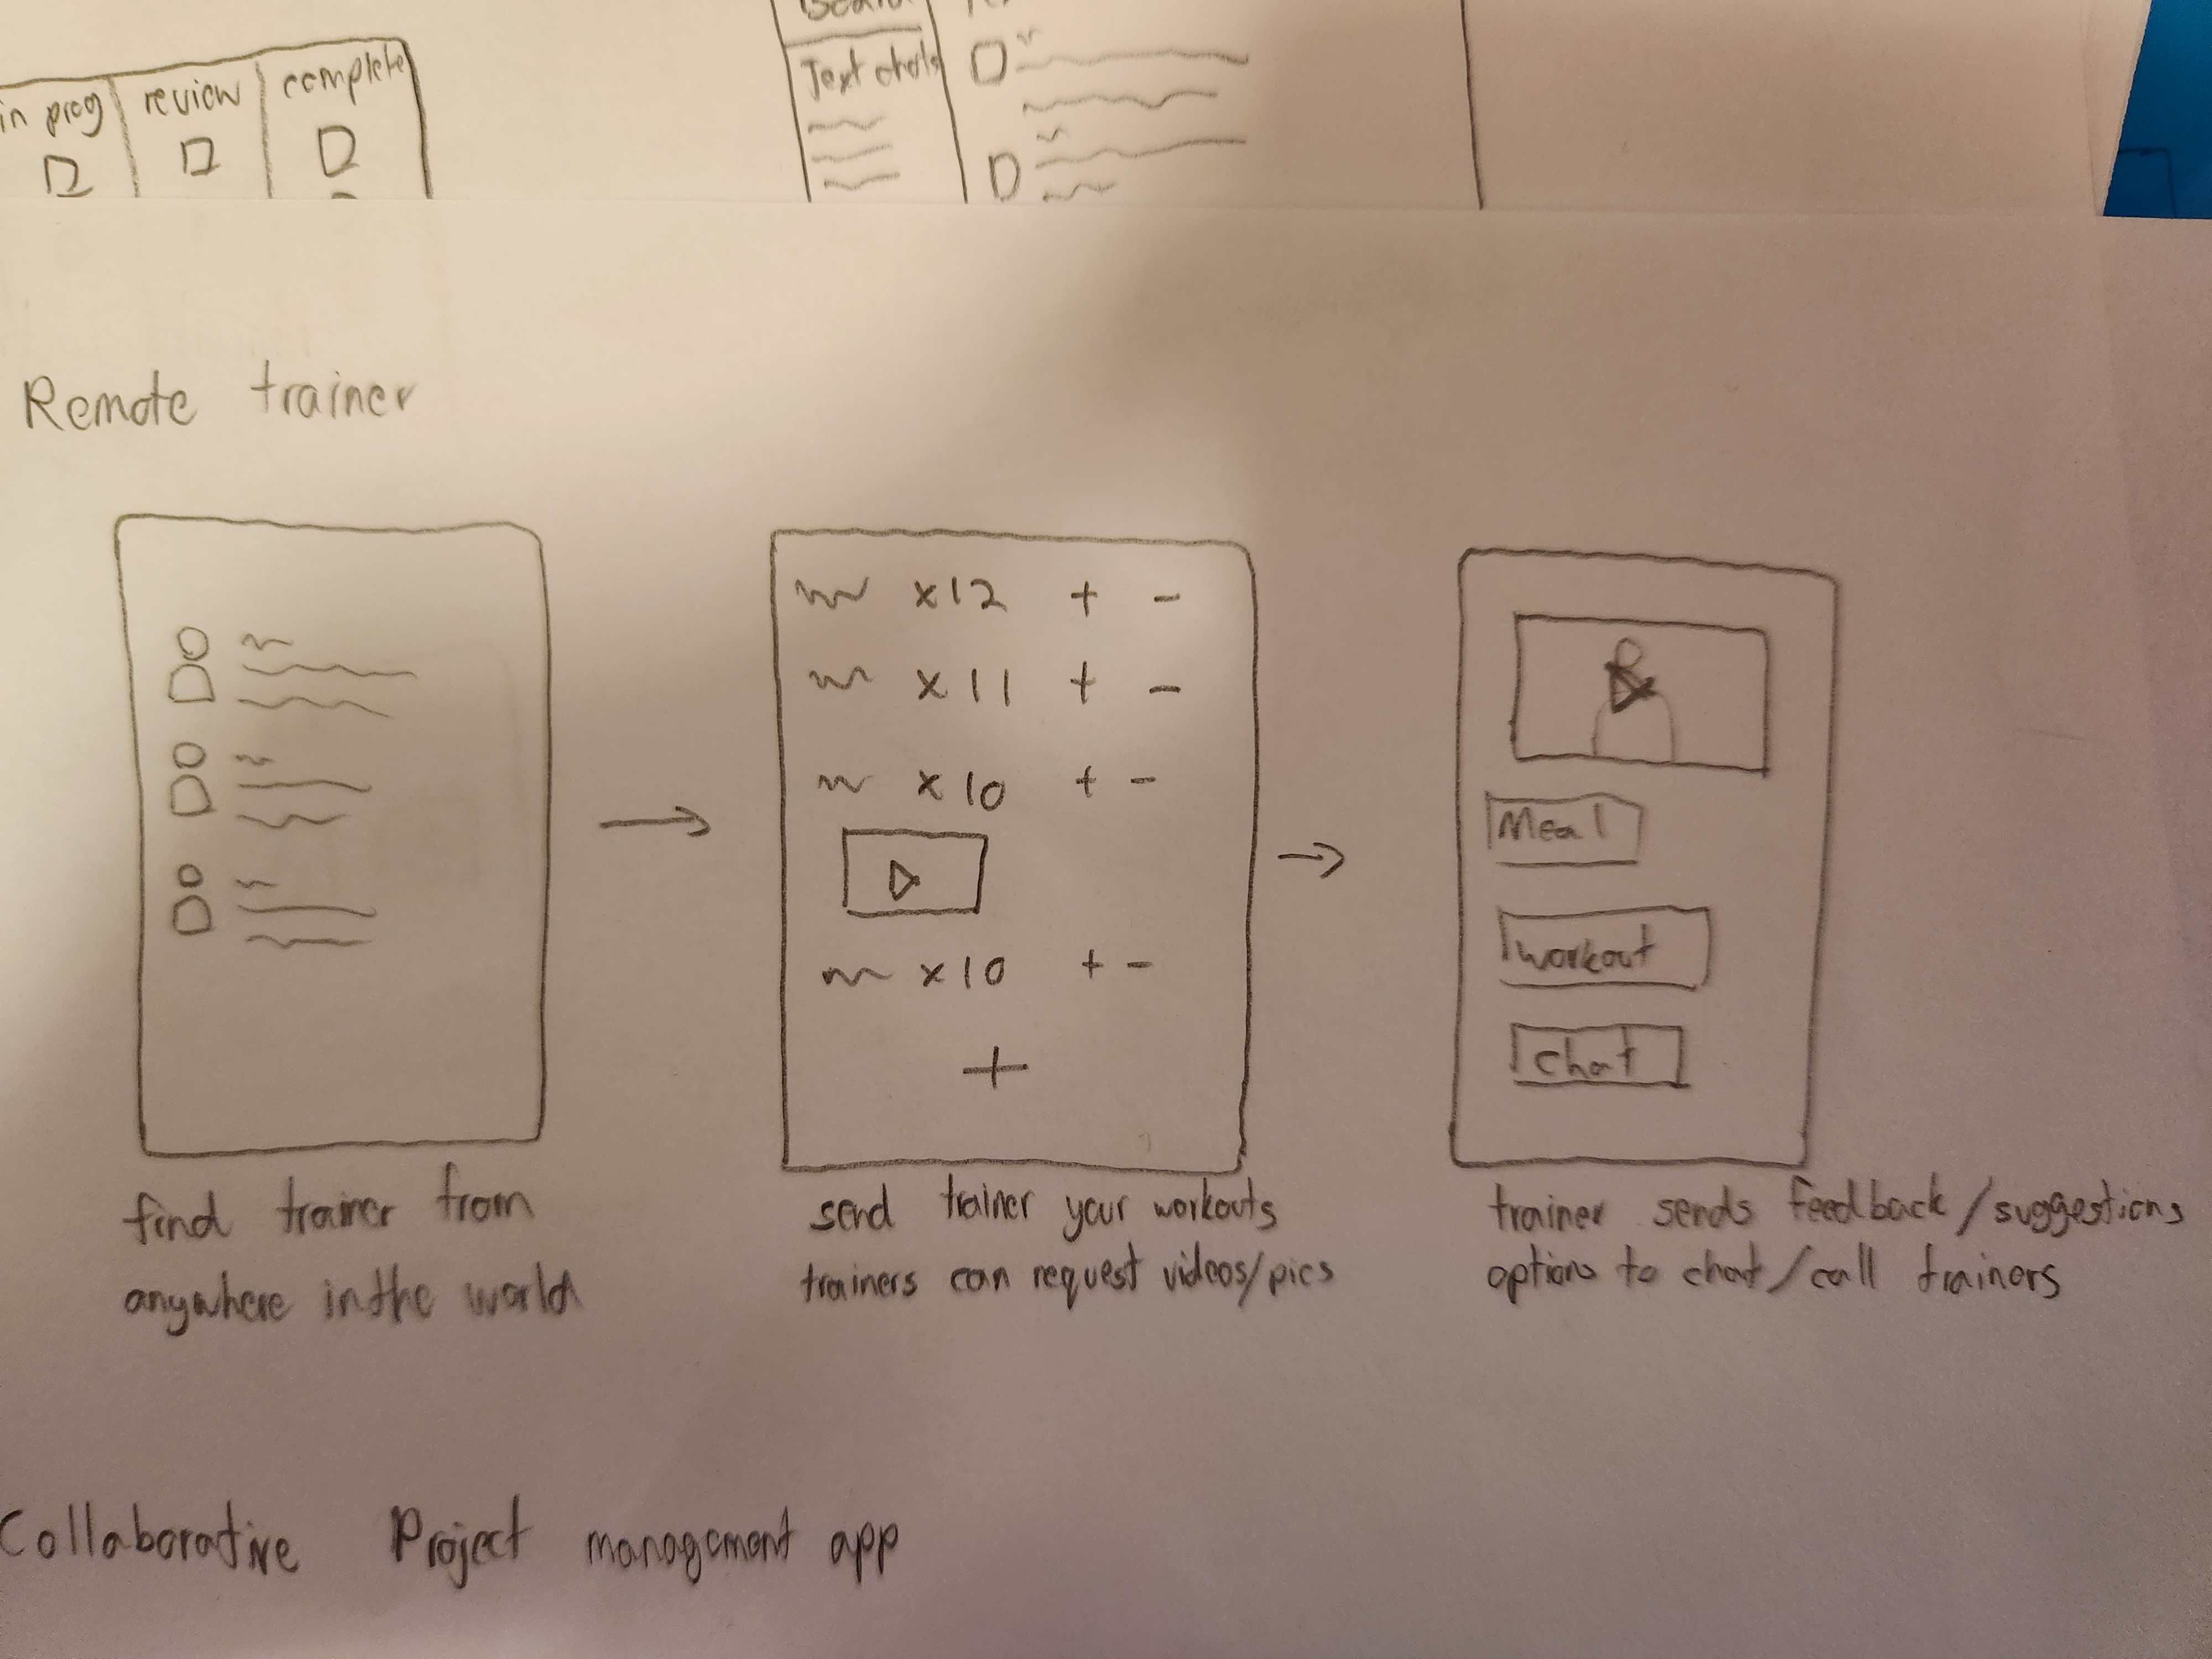 in prog review complete
Text chats
Remote trainer
x12 + -
x11 + -
x10 + -
x10 + -
+
Meal
workout
chat
find trainer from
anywhere in the world
send trainer your workouts
trainers can request videos/pics
trainer sends feedback/suggestions
options to chat/call trainers
Collaborative Project management app